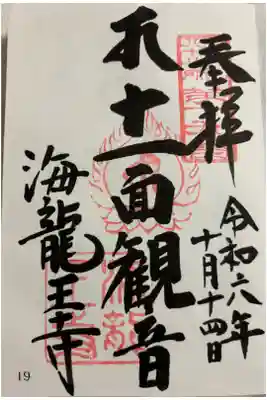 奉拝
令和六年
十月十四日
十一面観音
海龍王寺
19